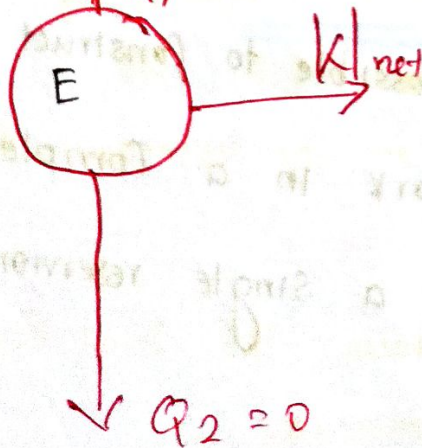 E
W net
Q2 = 0